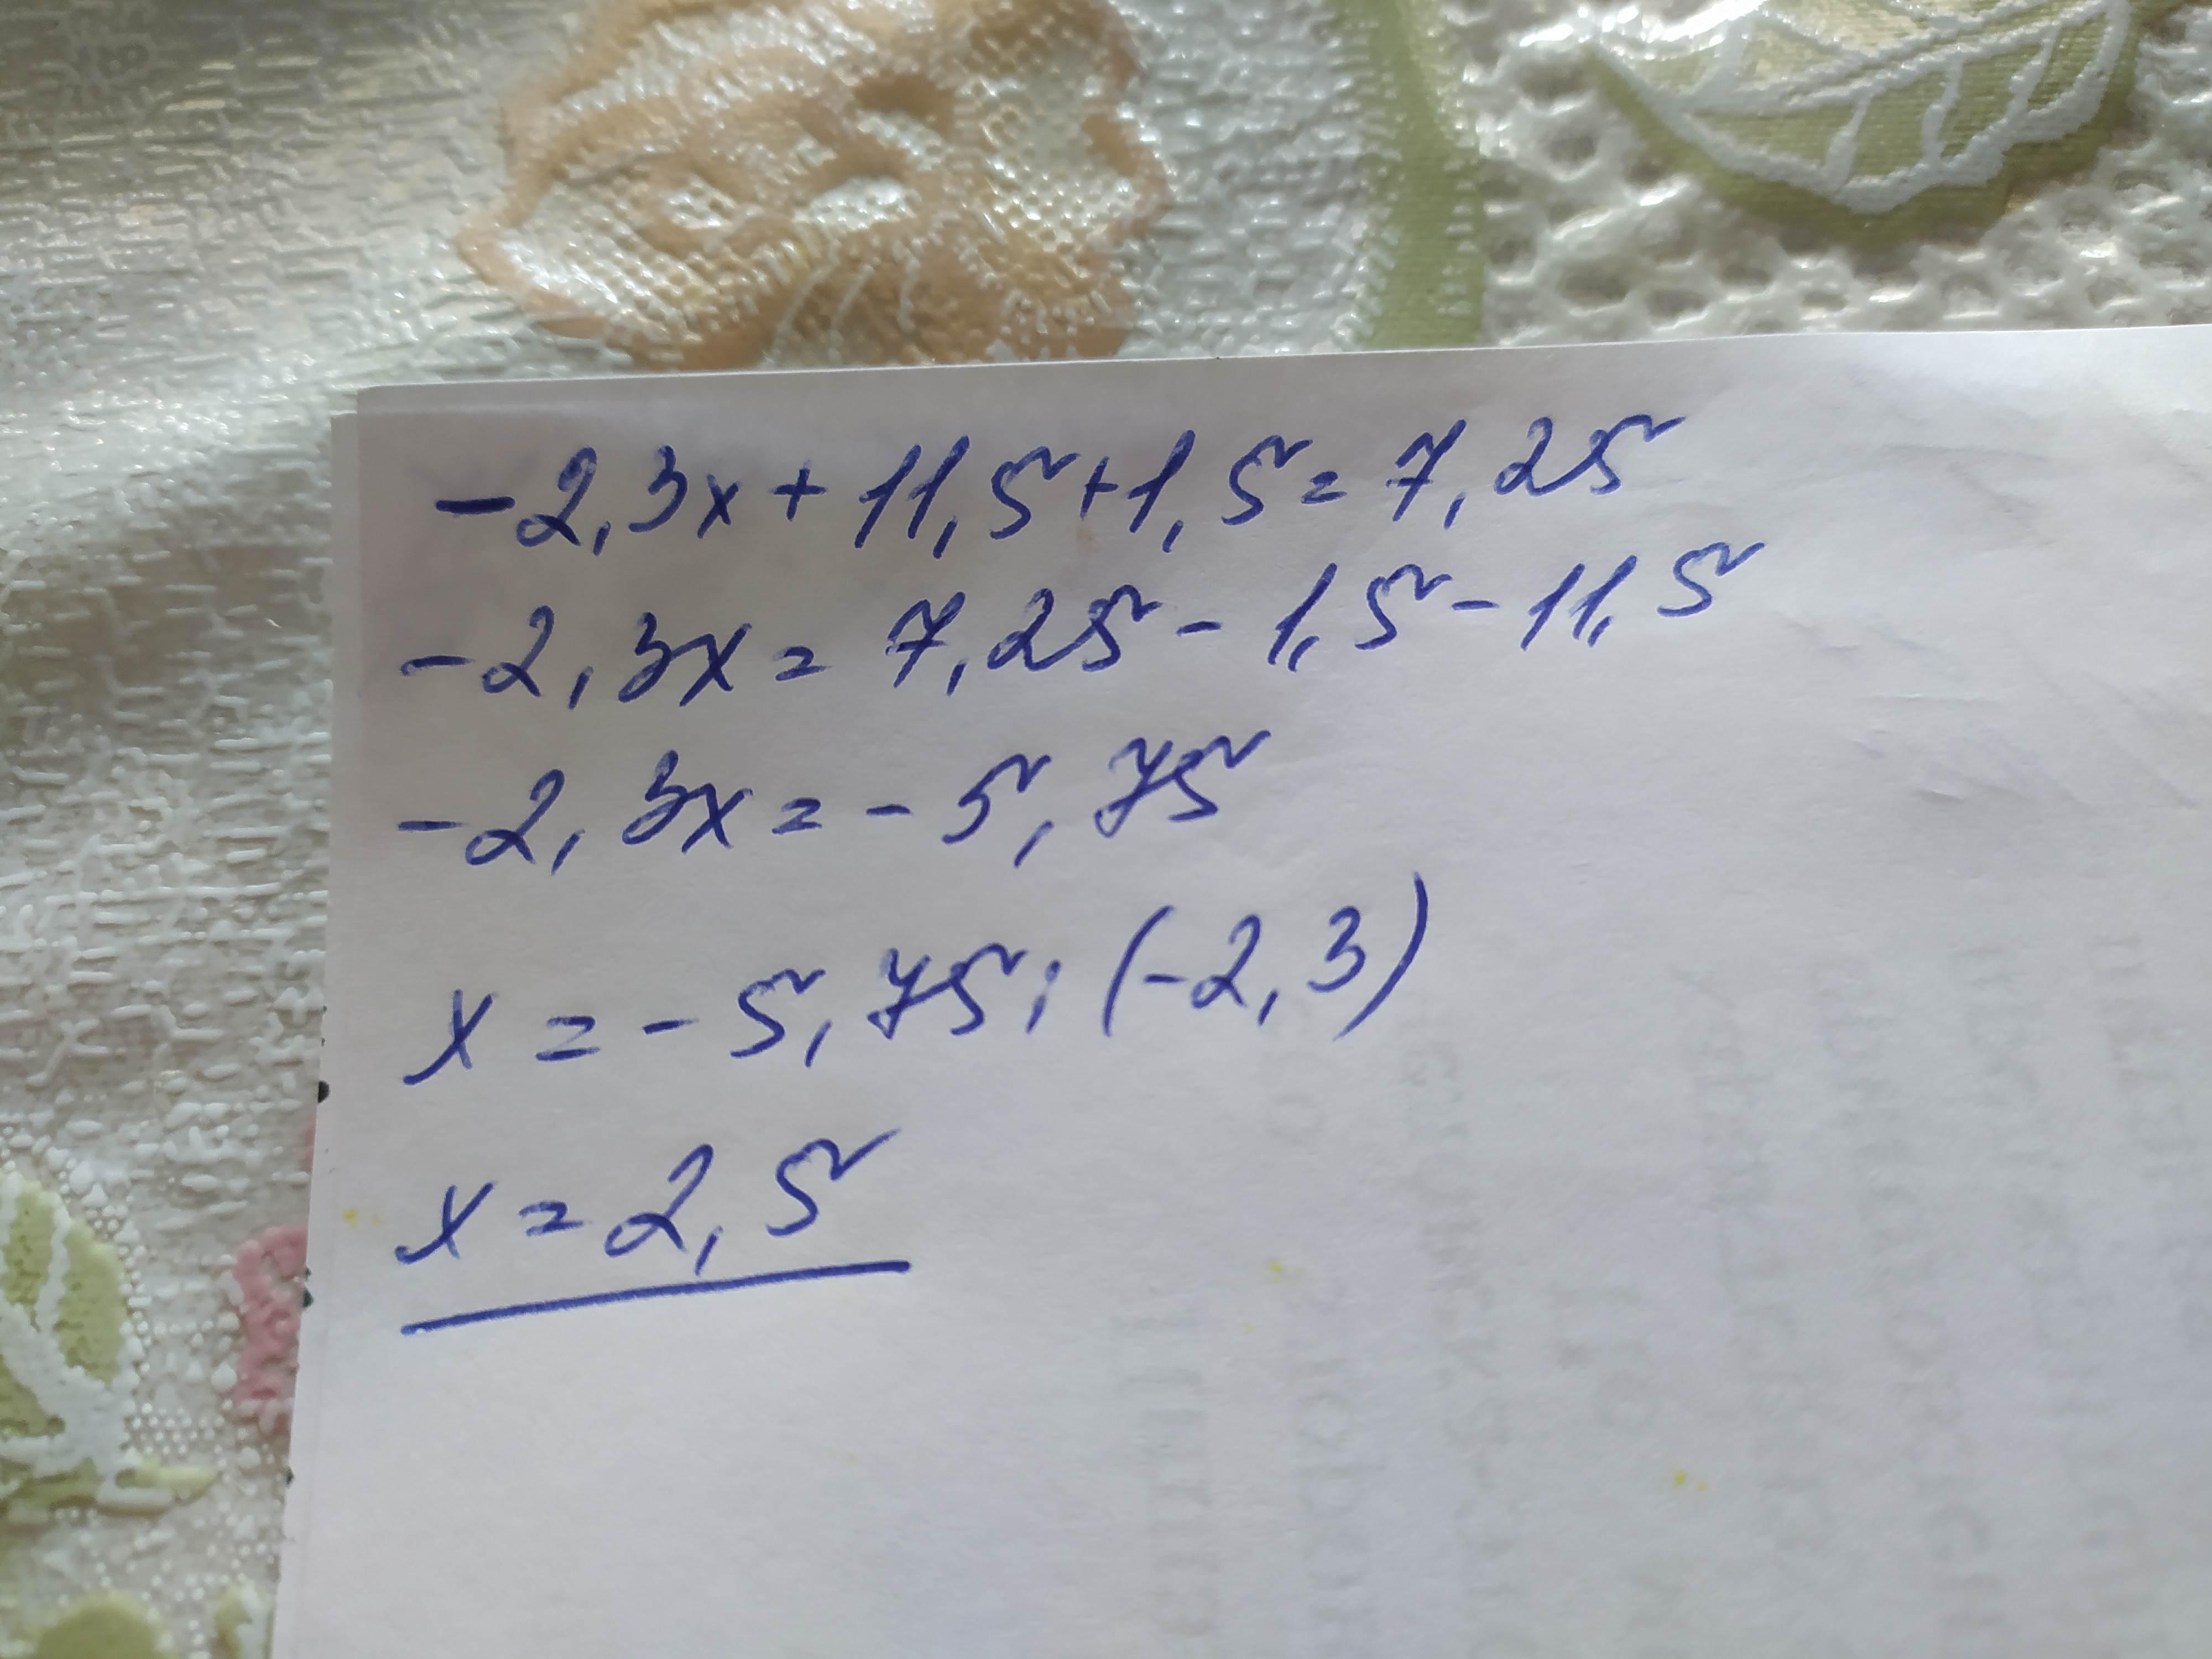 -2,3x+11,5+1,5=7,25
-2,3x=7,25-1,5-11,5
-2,3x=-5,75
x=-5,75:(-2,3)
x=2,5